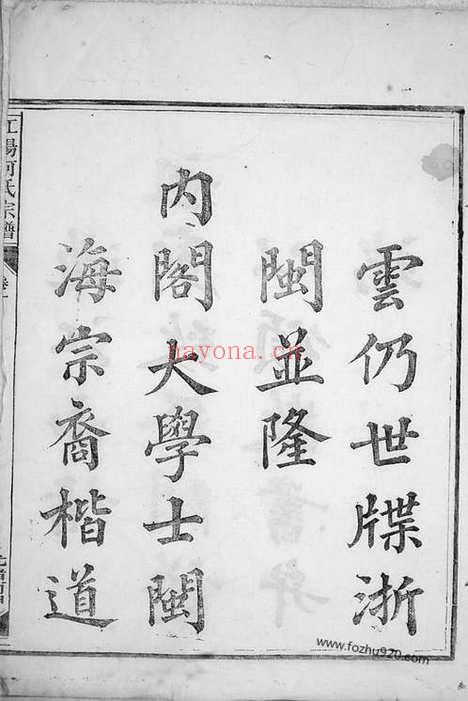 雲仍世牒浙
閩並隆
内閣大學士閩
海宗裔楷道
江陽何氏宗譜
nayona.cn
www.fozhu920.com